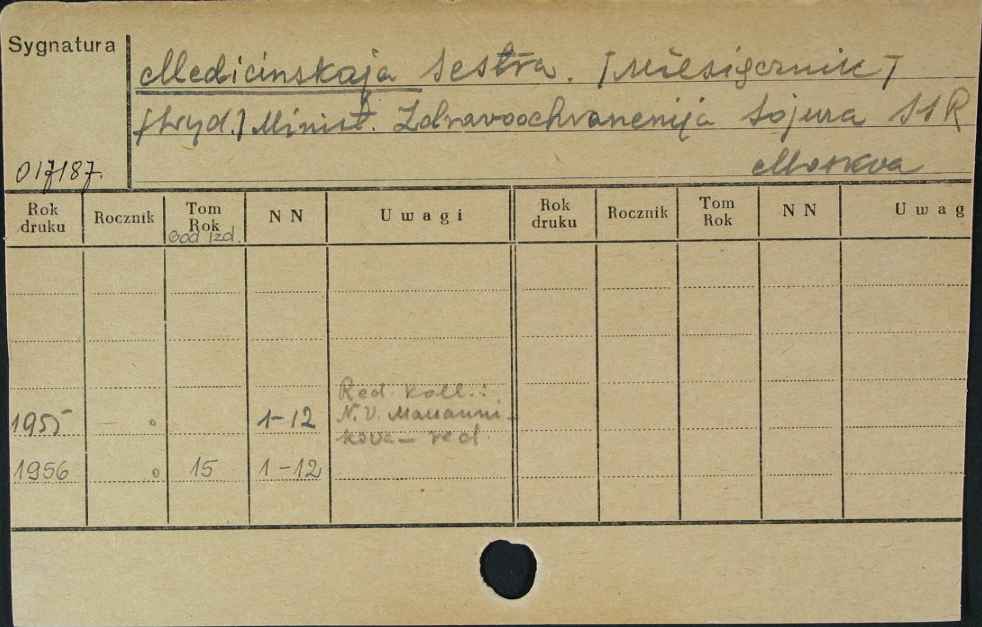 Sygnatura
Medicinskaja Sestra. [Miesięcznik]
[Wyd.] Minist. Zdravoochranenija Sojuza SSR
Moskva
017187.
Rok druku Rocznik Tom Rok N N Uwagi Rok druku Rocznik Tom Rok N N Uwag
God izd.
Red. koll.:
1955 1-12 N. V.
kova - red
1956 15 1-12